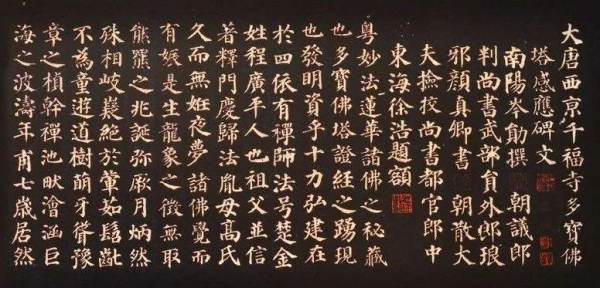 大唐西京千福寺多寶佛
塔感應碑文
南陽岑勛撰 朝議郎
判尚書武部員外郎琅
邪顏真卿書 朝散大
夫撿校尚書都官郎中
東海徐浩題額
粵妙法蓮華諸佛之秘藏
也多寶佛塔證經之踴現
也發明資乎十力弘建在
於四依有禪師法号楚金
姓程廣平人也祖父並信
著釋門慶歸法胤母高氏
久而無妊夜夢諸佛覺而
有娠是生龍象之徵無取
熊羆之兆誕弥厥月炳然
殊相岐嶷絕於葷茹髫齔
不為童遊道樹萌牙聳豫
章之楨幹禪池畎澮涵巨
海之波濤年甫七歲居然